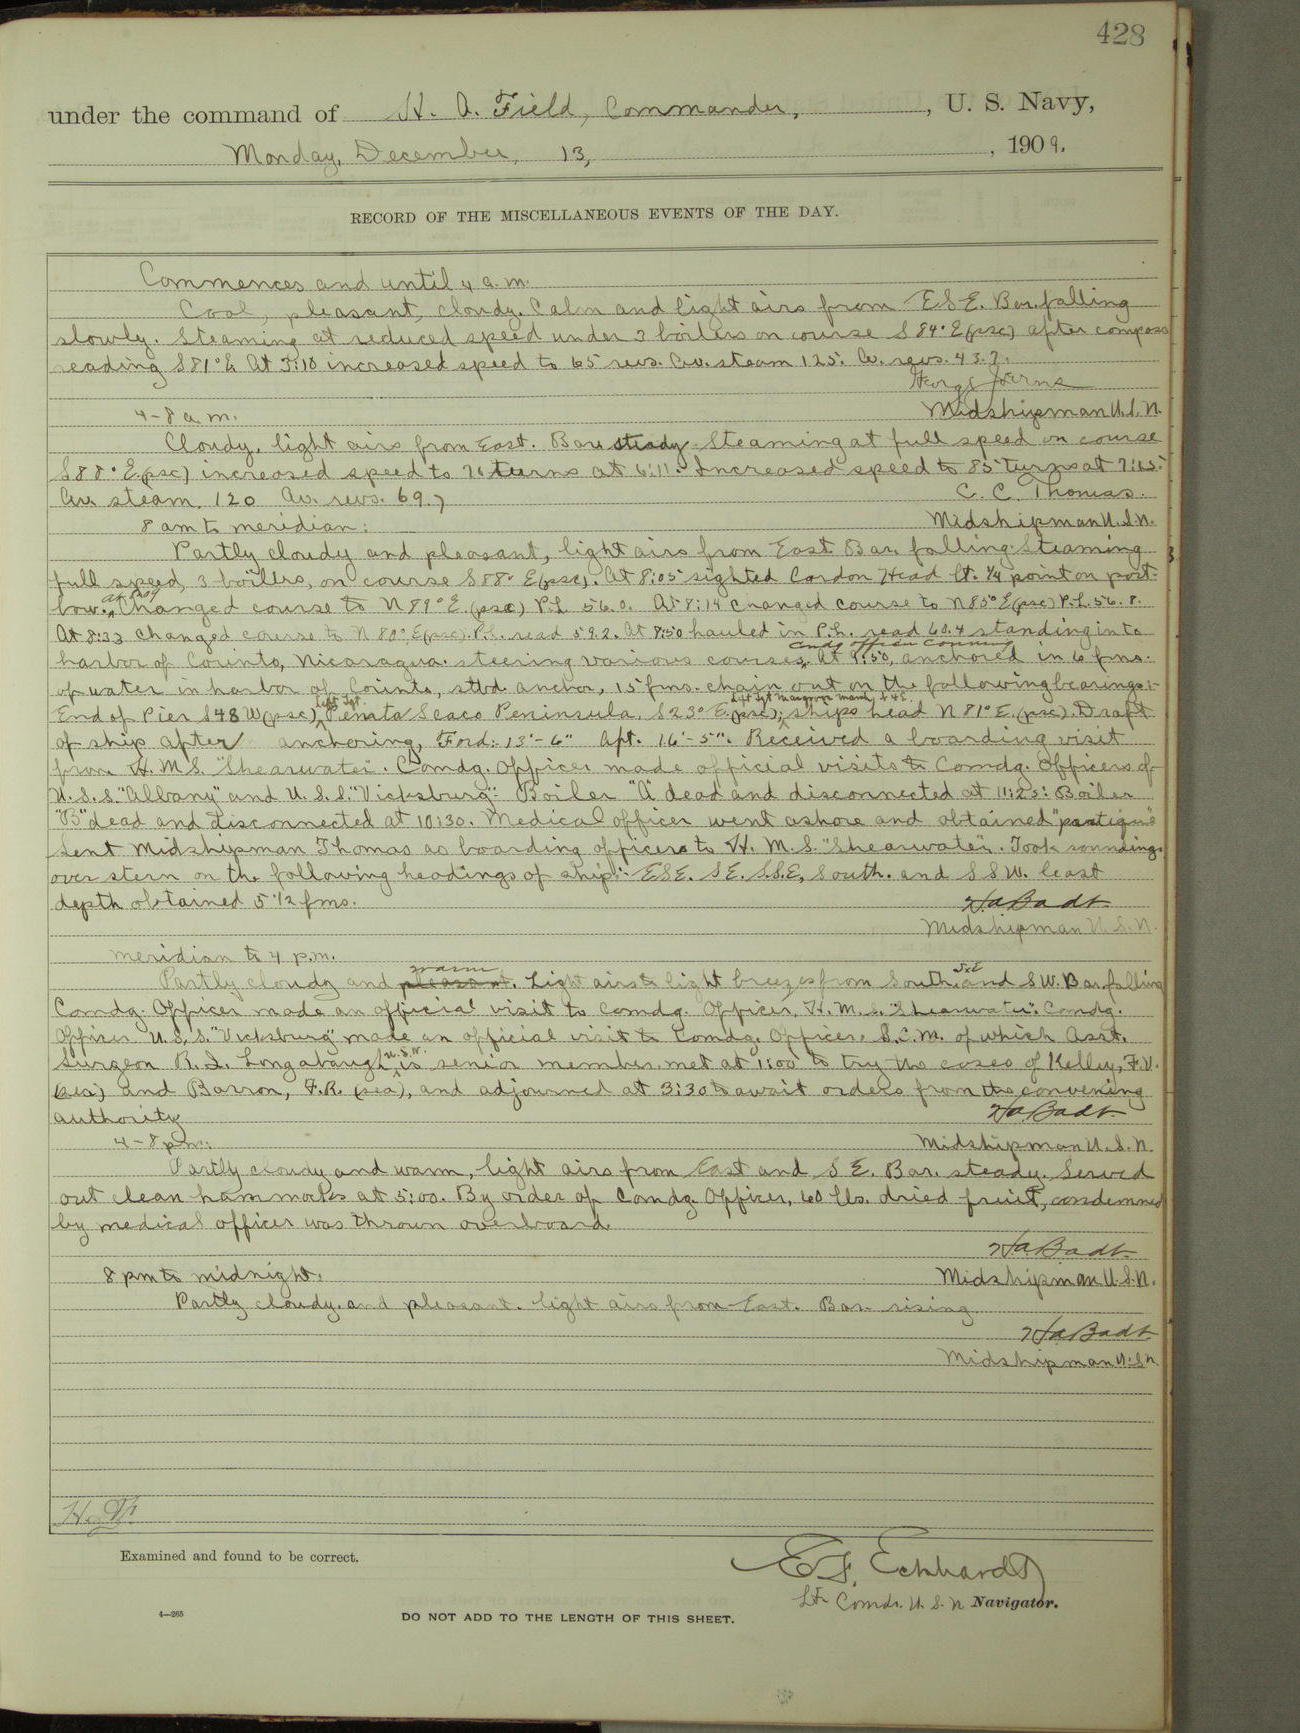 428
under the command of H. A. Field, Commander, , U. S. Navy,
Monday, December, 13, , 1909.
RECORD OF THE MISCELLANEOUS EVENTS OF THE DAY.
Commences and until 4 a.m.
Cool, pleasant, cloudy. Calm and light airs from ESE. Bar. falling
slowly. Steaming at reduced speed under 3 boilers on course S 84° E (psc) after compass
reading S 81° E. At 3:10 increased speed to 65 revs. Av. steam 125. Av. revs. 43.7.
Midshipman U.S.N.
4-8 a.m.
Cloudy, light airs from East. Bar steady. Steaming at full speed on course
S 88° E. (psc) increased speed to 76 turns at 6:11. Increased speed to 85 turns at 7:15.
Av. steam. 120 Av. revs. 69.7
C. C. Thomas.
8 am to meridian:
Midshipman U.S.N.
Partly cloudy and pleasant, light airs from East. Bar. falling. Steaming
full speed, 3 boilers, on course S 88° E (psc). At 8:05 sighted Cardon Head lt. 1/4 point on port
bow. at 8:09 Changed course to N 89° E. (psc) P.L. 56.0. At 8:14 changed course to N 85° E (psc) P.L. 56.8.
At 8:33 changed course to N 80° E (psc). P.L. read 59.2. At 8:50 hauled in P.L. read 60.4 standing in to
harbor of Corinto, Nicaragua. steering various courses, Cmdg officer conning At 9:50, anchored in 6 fms.
of water in harbor of Corinto, stbd anchor, 15 fms. chain out on the following bearings:-
End of Pier S 48 W (psc), Left Tgt. Penata Seaco Peninsula, S 23° E. (psc); ships head N 81° E. (psc). Draft
of ship after anchoring, Ford: 13'-6" Aft. 16'-5". Received a boarding visit
from H.M.S. "Shearwater". Comdg. Officer made official visits to Comdg. Officers of
U.S.S. "Albany" and U.S.S. "Vicksburg". Boiler "A" dead and disconnected at 11:25: Boiler
"B" dead and disconnected at 10:30. Medical officer went ashore and obtained "pratique"
Sent Midshipman Thomas as boarding officer to H. M. S. "Shearwater". Took soundings
over stern on the following headings of ship:- ESE. SE. SSE, South. and SSW. least
depth obtained 5 1/2 fms.
H a Badt
Midshipman U.S.N.
meridian to 4 p.m.
Partly cloudy and pleasant. warm Light airs to light breezes from South, SxE and SW. Bar falling
Comdg. Officer made an official visit to Comdg. Officer, H. M. S. "Shearwater". Comdg.
Officer U.S.S. "Vicksburg" made an official visit to Comdg. Officer. S.C.M. of which Asst.
Surgeon R. I. Longabaugh U.S.N. is senior member met at 1:00 to try the cases of Kelley, F.V.
(sea) and Barron, F.R. (sea), and adjourned at 3:30 to await orders from the convening
authority
H a Badt
4-8 p.m:
Midshipman U.S.N.
Partly cloudy and warm, light airs from East and SE. Bar. steady. Served
out clean hammocks at 5:00. By order of Comdg. Officer, 60 lbs. dried fruit, condemned
by medical officer was thrown overboard.
H a Badt
8 pm to midnight.
Midshipman U.S.N.
Partly cloudy and pleasant. light airs from East. Bar. rising.
H a Badt
Midshipman U.S.N.
Examined and found to be correct.
E. F. Eckhardt
Lt. Comdr. U.S.N Navigator.
4—265
DO NOT ADD TO THE LENGTH OF THIS SHEET.